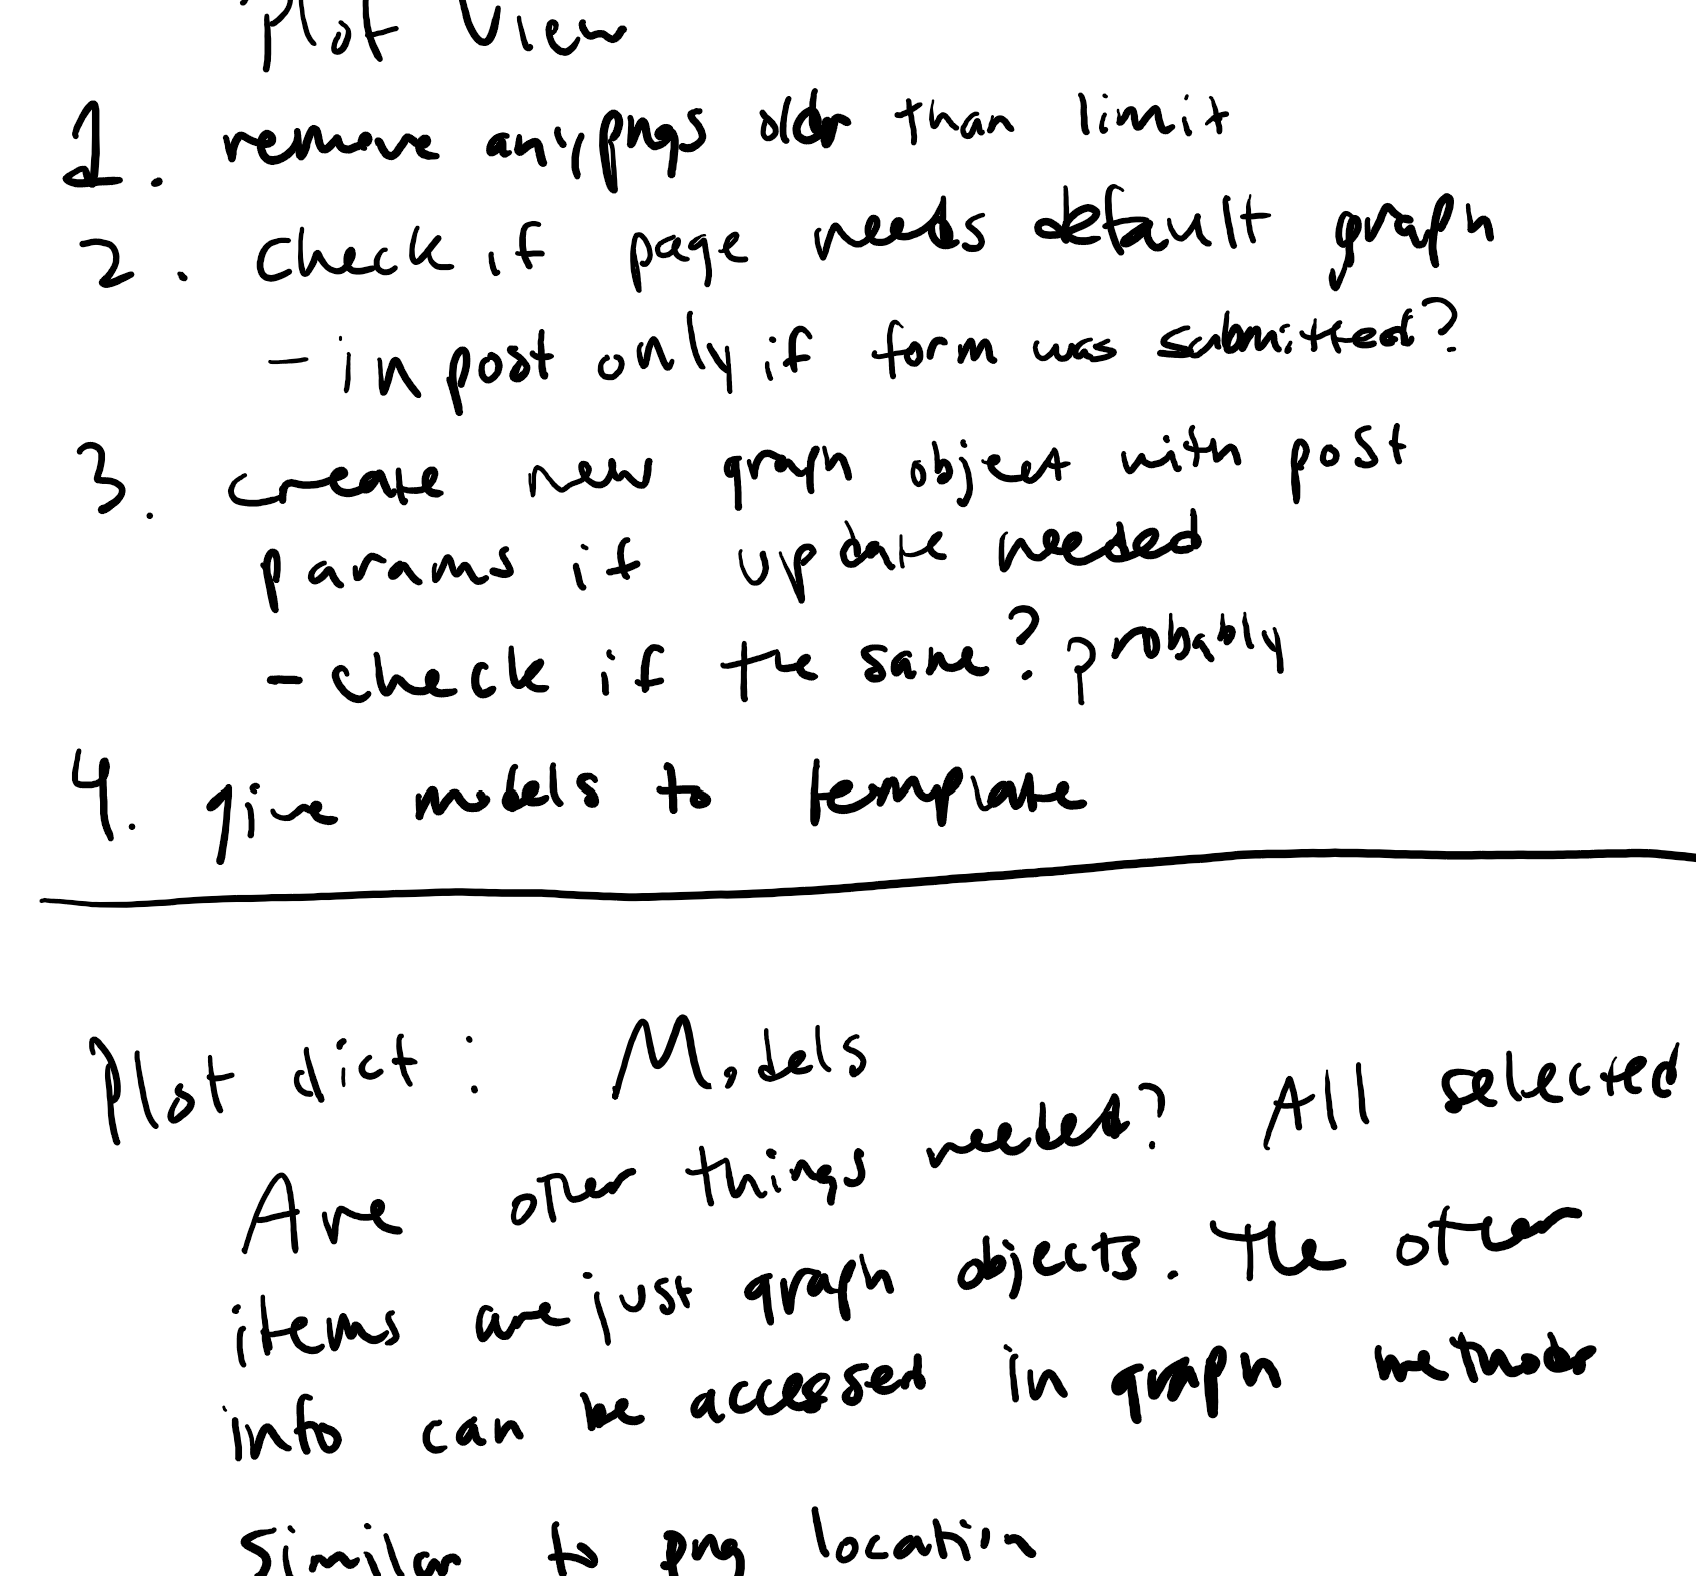 Plot View
1. remove any pngs older than limit
2. check if page needs default graph
- in post only if form was submitted?
3. create new graph object with post
params if update needed
- check if the same? probably
4. give models to template
Plot dict: Models
Are other things needed? All selected
items are just graph objects. The other
info can be accessed in graph methods
similar to png location